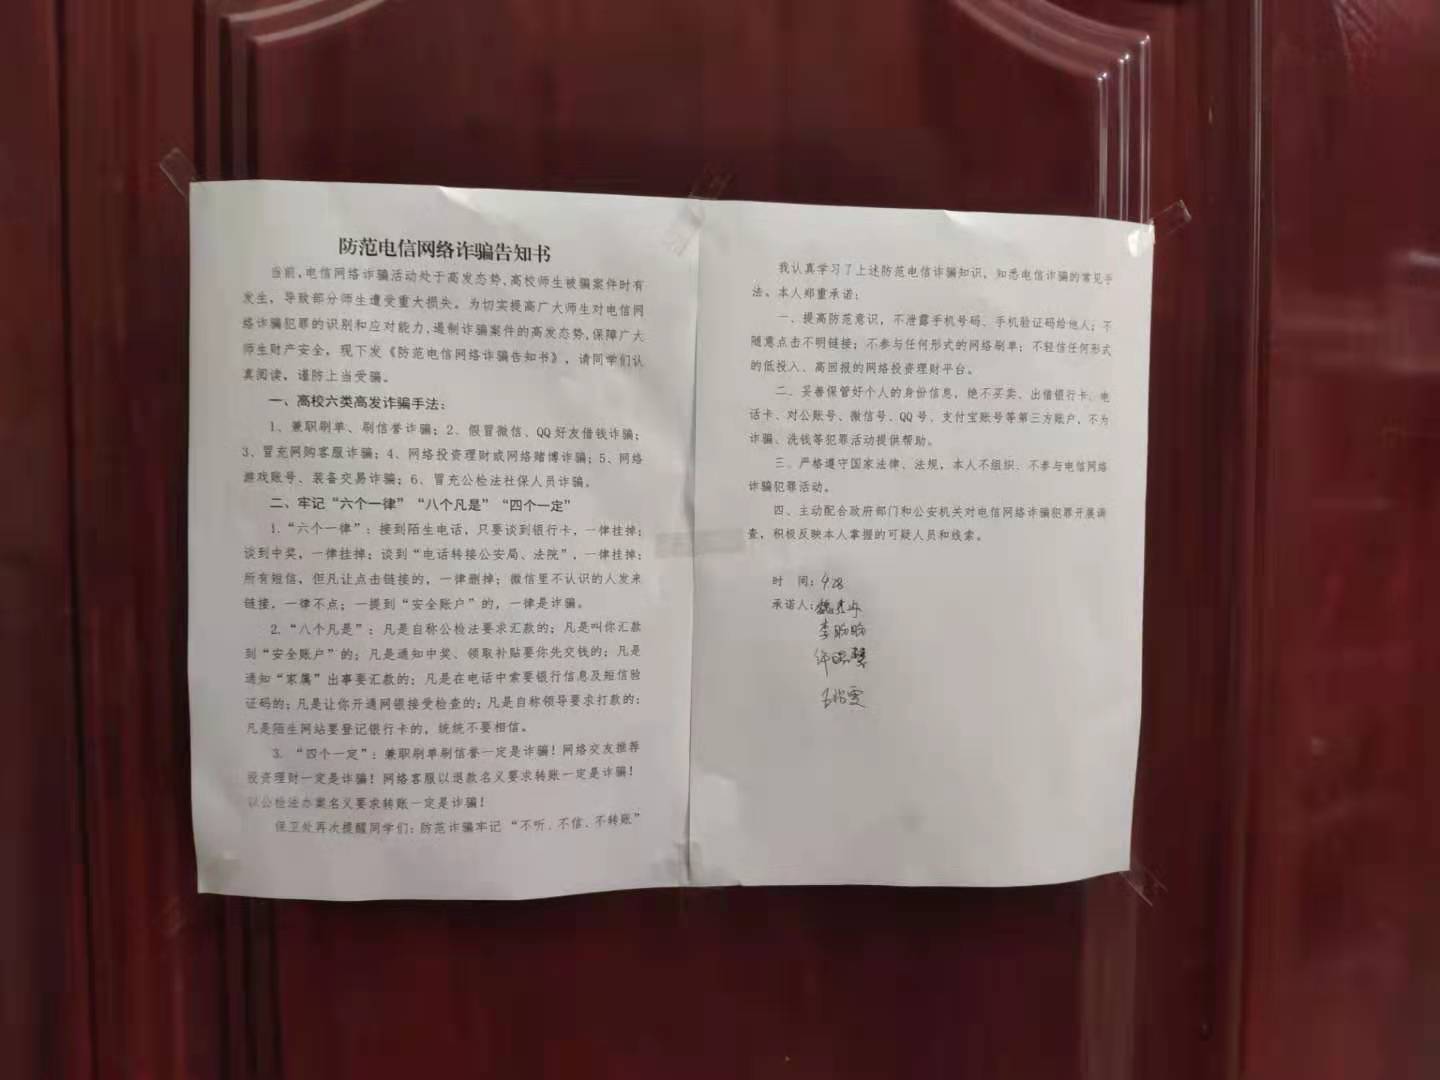 防范电信网络诈骗告知书
当前,电信网络诈骗活动处于高发态势,高校师生被骗案件时有
发生，导致部分师生遭受重大损失。为切实提高广大师生对电信网
络诈骗犯罪的识别和应对能力,遏制诈骗案件的高发态势,保障广大
师生财产安全，现下发《防范电信网络诈骗告知书》，请同学们认
真阅读，谨防上当受骗。
一、高校六类高发诈骗手法：
1、兼职刷单、刷信誉诈骗；2、假冒微信、QQ好友借钱诈骗；
3、冒充网购客服诈骗；4、网络投资理财或网络赌博诈骗；5、网络
游戏账号、装备交易诈骗；6、冒充公检法社保人员诈骗。
二、牢记“六个一律”“八个凡是”“四个一定”
1.“六个一律”：接到陌生电话，只要谈到银行卡，一律挂掉；
谈到中奖，一律挂掉；谈到“电话转接公安局、法院”，一律挂掉；
所有短信，但凡让点击链接的，一律删掉；微信里不认识的人发来
链接，一律不点；一提到“安全账户”的，一律是诈骗。
2.“八个凡是”：凡是自称公检法要求汇款的；凡是叫你汇款
到“安全账户”的；凡是通知中奖、领取补贴要你先交钱的；凡是
通知“家属”出事要汇款的；凡是在电话中索要银行信息及短信验
证码的；凡是让你开通网银接受检查的；凡是自称领导要求打款的；
凡是陌生网站要登记银行卡的，统统不要相信。
3.“四个一定”：兼职刷单刷信誉一定是诈骗！网络交友推荐
投资理财一定是诈骗！网络客服以退款名义要求转账一定是诈骗！
以公检法办案名义要求转账一定是诈骗！
保卫处再次提醒同学们：防范诈骗牢记“不听、不信、不转账”
我认真学习了上述防范电信诈骗知识，知悉电信诈骗的常见手
法。本人郑重承诺：
一、提高防范意识，不泄露手机号码、手机验证码给他人；不
随意点击不明链接；不参与任何形式的网络刷单；不轻信任何形式
的低投入、高回报的网络投资理财平台。
二、妥善保管好个人的身份信息，绝不买卖、出借银行卡、电
话卡、对公账号、微信号、QQ号、支付宝账号等第三方账户，不为
诈骗、洗钱等犯罪活动提供帮助。
三、严格遵守国家法律、法规，本人不组织、不参与电信网络
诈骗犯罪活动。
四、主动配合政府部门和公安机关对电信网络诈骗犯罪开展调
查，积极反映本人掌握的可疑人员和线索。
时 间：9.28
承诺人：
李盼盼